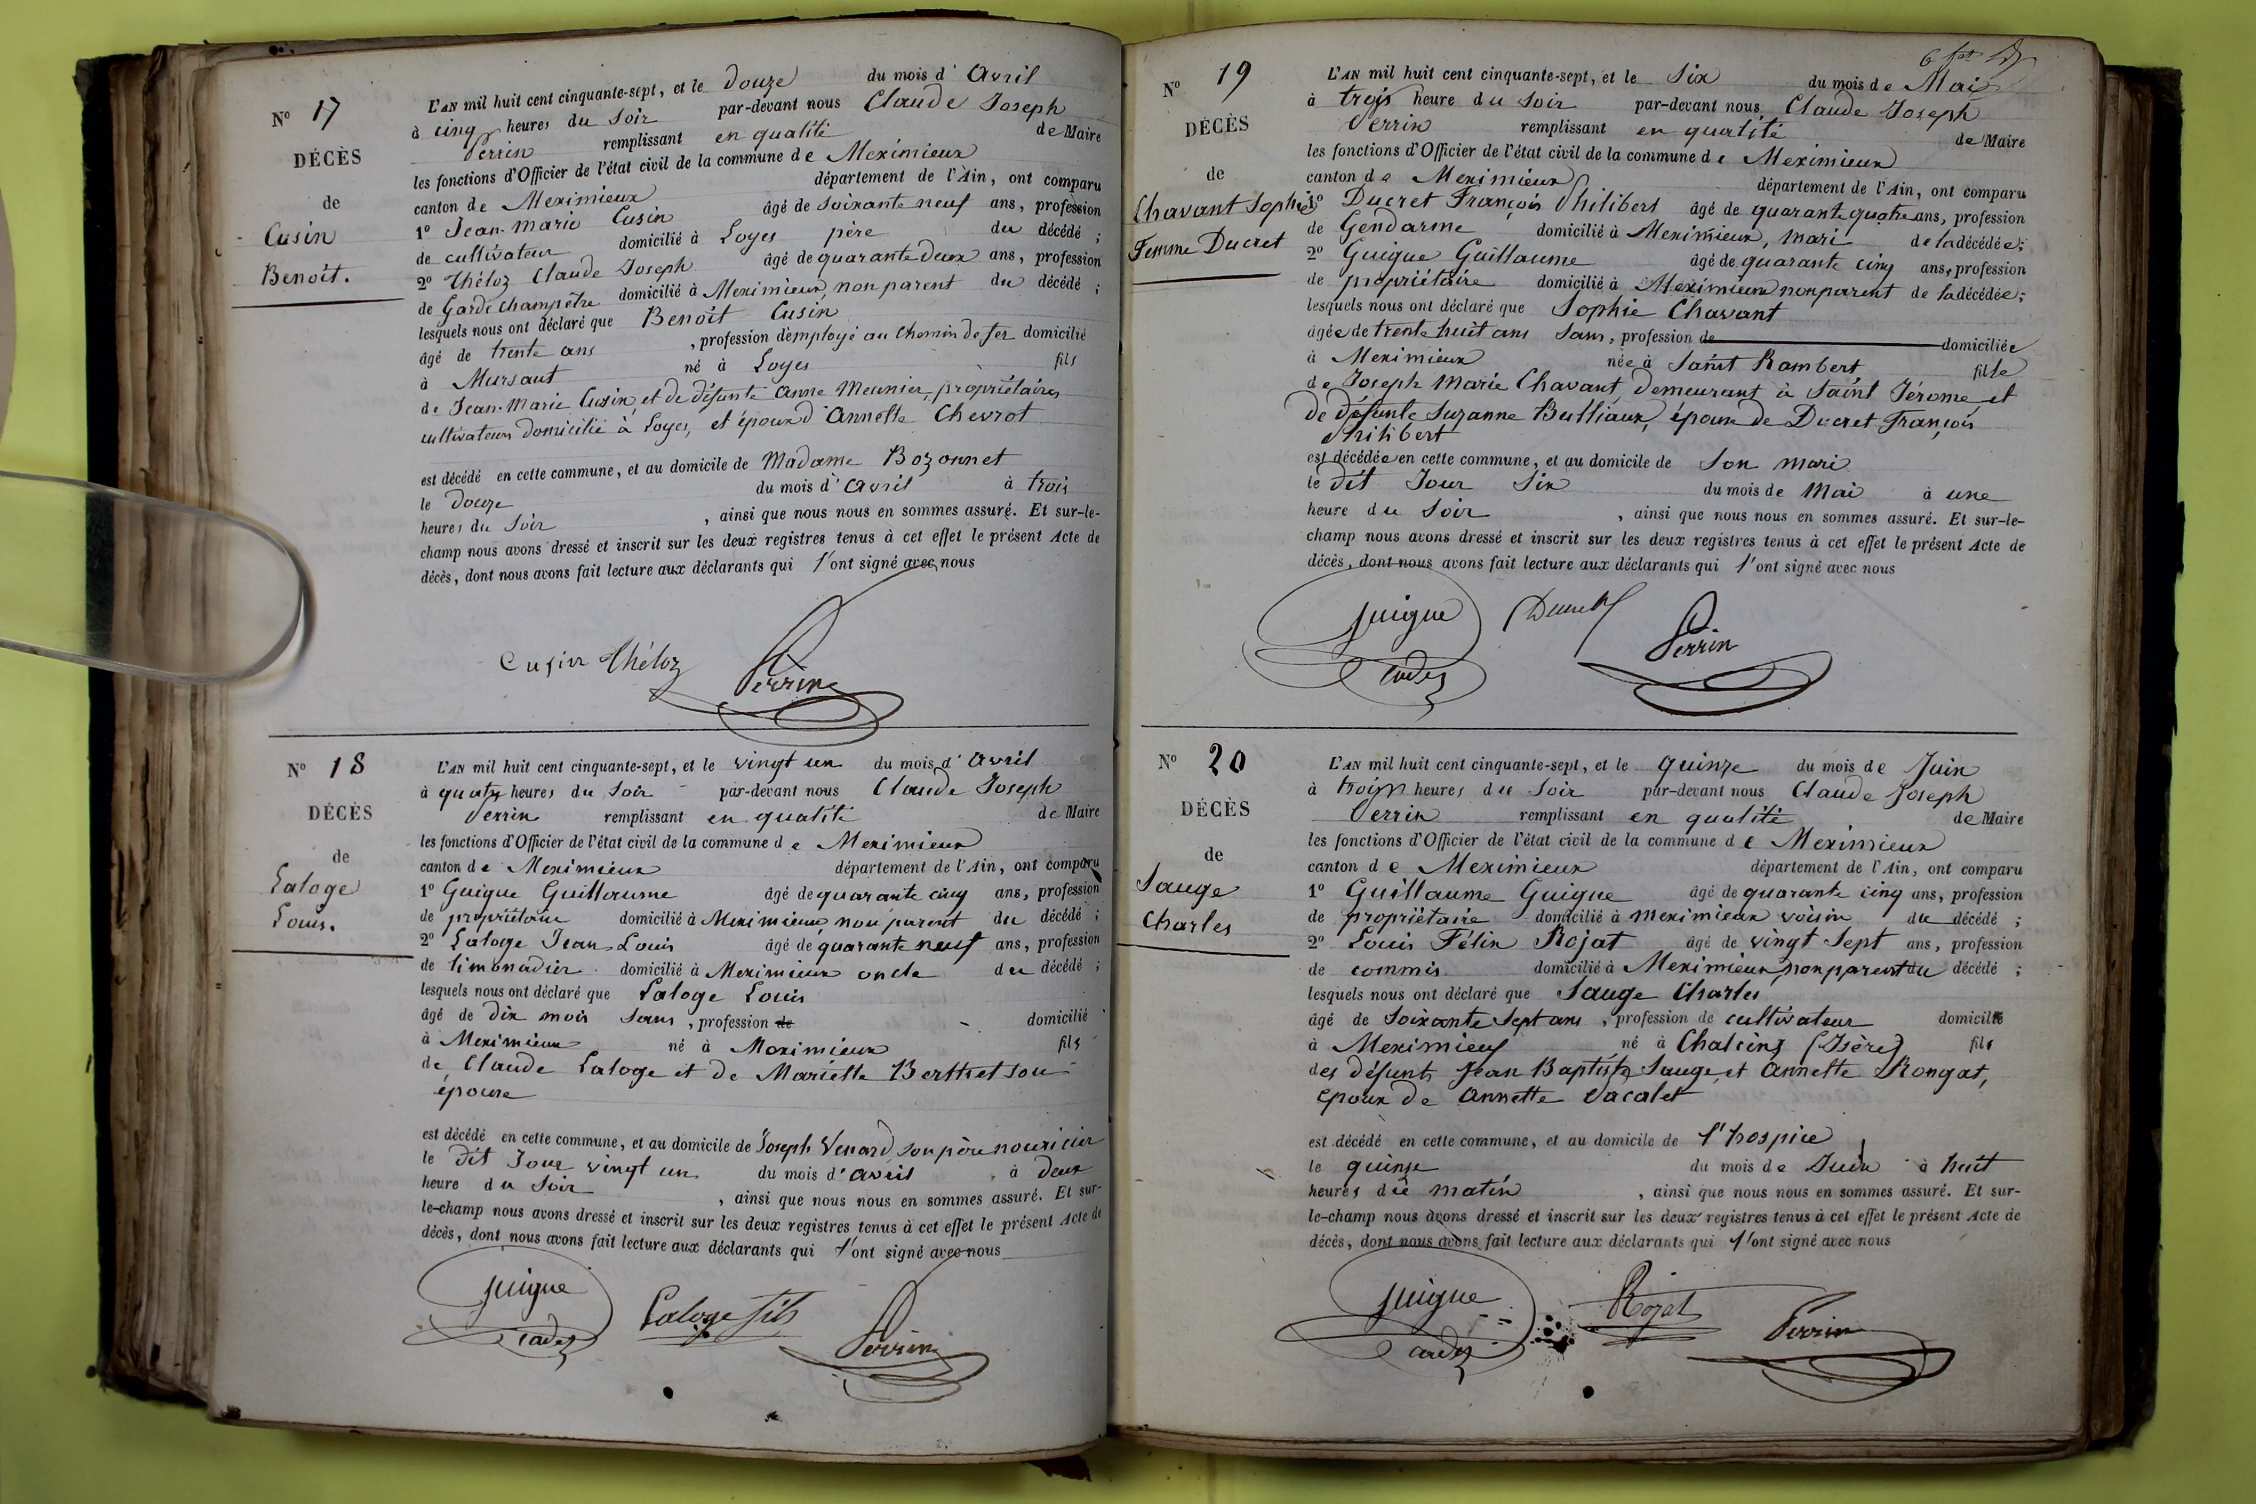 N° 17
DÉCÈS
de
Cusin
Benoit.
L'AN mil huit cent cinquante-sept, et le douze du mois d'Avril
à cinq heures du Soir par-devant nous Claude Joseph
Perrin remplissant en qualité de Maire
les fonctions d'Officier de l'état civil de la commune de Meximieux
canton de Meximieux département de l'Ain, ont comparu
1° Jean-Marie Cusin âgé de Soixante neuf ans, profession
de cultivateur domicilié à Loyes père du décédé ;
2° Théloz Claude Joseph âgé de quarante deux ans, profession
de Garde champêtre domicilié à Meximieux, non parent du décédé ;
lesquels nous ont déclaré que Benoit Cusin
âgé de trente ans , profession d'employé au chemin de fer domicilié
à Mursaut né à Loyes fils
de Jean-Marie Cusin, et de défunte Anne Meunier, propriétaires
cultivateurs domicilié à Loyes, et époux d'Annette Chevrot
est décédé en cette commune, et au domicile de Madame Bozonnet
le douze du mois d'avril à trois
heures du Soir , ainsi que nous nous en sommes assuré. Et sur-le-
champ nous avons dressé et inscrit sur les deux registres tenus à cet effet le présent Acte de
décès, dont nous avons fait lecture aux déclarants qui l'ont signé avec nous
Cusin Théloz Perrin
N° 18
DÉCÈS
de
Laloge
Louis.
L'AN mil huit cent cinquante-sept, et le vingt un du mois d'Avril
à quatre heures du Soir par-devant nous Claude Joseph
Perrin remplissant en qualité de Maire
les fonctions d'Officier de l'état civil de la commune de Meximieux
canton de Meximieux département de l'Ain, ont comparu
1° Guigue Guillaume âgé de quarante cinq ans, profession
de propriétaire domicilié à Meximieux, non parent du décédé ;
2° Laloge Jean Louis âgé de quarante neuf ans, profession
de limonadier domicilié à Meximieux oncle du décédé ;
lesquels nous ont déclaré que Laloge Louis
âgé de dix mois Sans , profession de domicilié
à Meximieux né à Meximieux fils
de Claude Laloge et de Mariette Berthet son
épouse
est décédé en cette commune, et au domicile de Joseph Venard, son père nouricier
le dit Jour vingt un du mois d'avril à deux
heure du Soir , ainsi que nous nous en sommes assuré. Et sur-
le-champ nous avons dressé et inscrit sur les deux registres tenus à cet effet le présent Acte de
décès, dont nous avons fait lecture aux déclarants qui l'ont signé avec nous
Guigue Laloge fils Perrin
N° 19
DÉCÈS
de
Chavant Sophie
Femme Ducret
L'AN mil huit cent cinquante-sept, et le Six du mois de Mai
à trois heure du Soir par-devant nous Claude Joseph
Perrin remplissant en qualité de Maire
les fonctions d'Officier de l'état civil de la commune de Meximieux
canton de Meximieux département de l'Ain, ont comparu
1° Ducret François Philibert âgé de quarante quatre ans, profession
de Gendarme domicilié à Meximieux, mari de la décédée ;
2° Guigue Guillaume âgé de quarante cinq ans, profession
de propriétaire domicilié à Meximieux non parent de la décédée ;
lesquels nous ont déclaré que Sophie Chavant
âgée de trente huit ans Sans, profession de domiciliée
à Meximieux née à Saint Rambert fille
de Joseph Marie Chavant, demeurant à Saint Jérome, et
de défunte Suzanne Bulliaux, épouse de Ducret François
Philibert
est décédée en cette commune, et au domicile de Son mari
le dit Jour Six du mois de Mai à une
heure du Soir , ainsi que nous nous en sommes assuré. Et sur-le-
champ nous avons dressé et inscrit sur les deux registres tenus à cet effet le présent Acte de
décès, dont nous avons fait lecture aux déclarants qui l'ont signé avec nous
Guigue Ducret Perrin
N° 20
DÉCÈS
de
Sauge
Charles
L'AN mil huit cent cinquante-sept, et le quinze du mois de Juin
à trois heures du Soir par-devant nous Claude Joseph
Perrin remplissant en qualité de Maire
les fonctions d'Officier de l'état civil de la commune de Meximieux
canton de Meximieux département de l'Ain, ont comparu
1° Guillaume Guigue âgé de quarante cinq ans, profession
de propriétaire domicilié à Meximieux voisin du décédé ;
2° Louis Félix Rojat âgé de vingt Sept ans, profession
de commis domicilié à Meximieux, non parent du décédé ;
lesquels nous ont déclaré que Sauge Charles
âgé de Soixante Sept ans , profession de cultivateur domicilié
à Meximieux né à Chaleins (Isère) fils
des défunts Jean Baptiste Sauge, et Annette Rongat,
époux de Annette Vacalet
est décédé en cette commune, et au domicile de l'hospice
le quinze du mois de Juin à huit
heures du matin , ainsi que nous nous en sommes assuré. Et sur-
le-champ nous avons dressé et inscrit sur les deux registres tenus à cet effet le présent Acte de
décès, dont nous avons fait lecture aux déclarants qui l'ont signé avec nous
Guigue Rojat Perrin